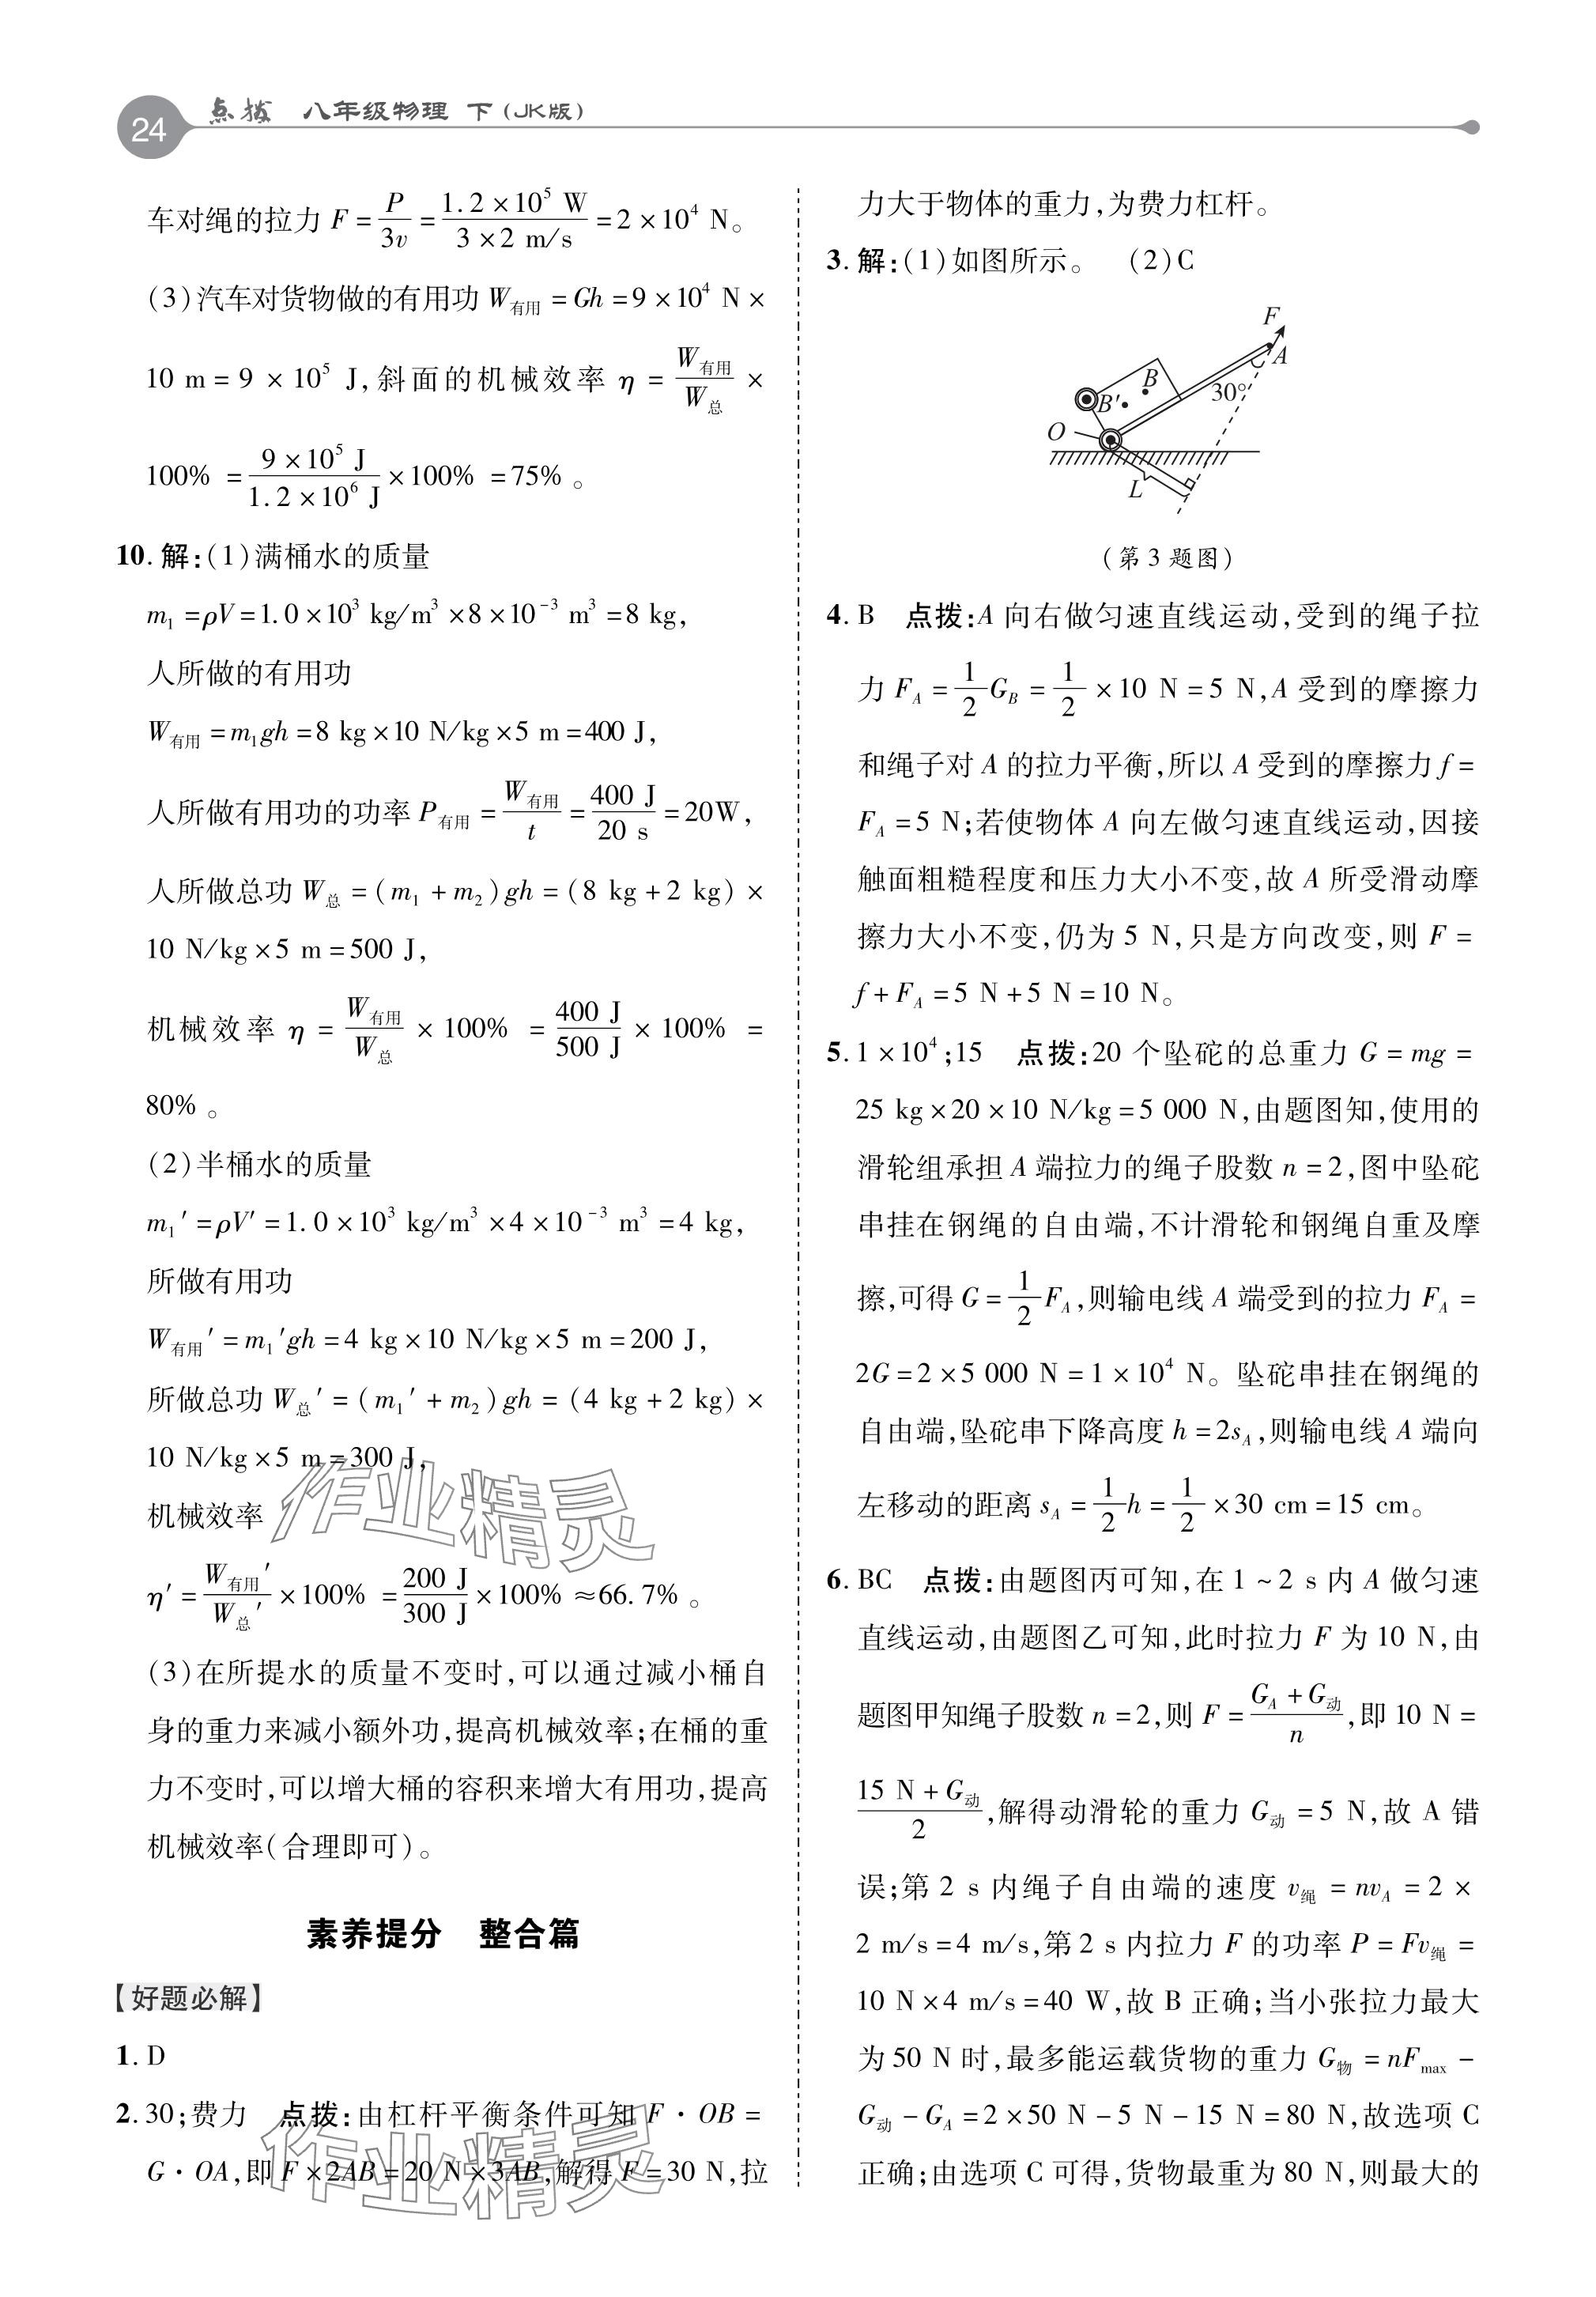 24 点拨 八年级物理 下(JK版)
车对绳的拉力 F = P/3v = 1.2×10⁵ W/(3×2 m/s) = 2×10⁴ N。
(3)汽车对货物做的有用功 W有用 = Gh = 9×10⁴ N×
10 m = 9×10⁵ J,斜面的机械效率 η = W有用/W总 ×
100% = 9×10⁵ J/1.2×10⁶ J ×100% = 75%。
10. 解:(1)满桶水的质量
m₁ = ρV = 1.0×10³ kg/m³×8×10⁻³ m³ = 8 kg,
人所做的有用功
W有用 = m₁gh = 8 kg×10 N/kg×5 m = 400 J,
人所做有用功的功率 P有用 = W有用/t = 400 J/20 s = 20W,
人所做总功 W总 = (m₁ + m₂)gh = (8 kg + 2 kg)×
10 N/kg×5 m = 500 J,
机械效率 η = W有用/W总 × 100% = 400 J/500 J × 100% =
80%。
(2)半桶水的质量
m₁′ = ρV′ = 1.0×10³ kg/m³×4×10⁻³ m³ = 4 kg,
所做有用功
W有用′ = m₁′gh = 4 kg×10 N/kg×5 m = 200 J,
所做总功 W总′ = (m₁′ + m₂)gh = (4 kg + 2 kg)×
10 N/kg×5 m = 300 J,
机械效率
η′ = W有用′/W总′ ×100% = 200 J/300 J ×100% ≈66.7%。
(3)在所提水的质量不变时,可以通过减小桶自
身的重力来减小额外功,提高机械效率;在桶的重
力不变时,可以增大桶的容积来增大有用功,提高
机械效率(合理即可)。
素养提分 整合篇
【好题必解】
1. D
2. 30;费力 点拨:由杠杆平衡条件可知 F·OB =
G·OA,即 F×2AB = 20 N×3AB,解得 F = 30 N,拉
力大于物体的重力,为费力杠杆。
3. 解:(1)如图所示。 (2)C
F
A
B
B′
30°
O
L
(第 3 题图)
4. B 点拨:A 向右做匀速直线运动,受到的绳子拉
力 F_A = 1/2 G_B = 1/2 ×10 N = 5 N,A 受到的摩擦力
和绳子对 A 的拉力平衡,所以 A 受到的摩擦力 f =
F_A = 5 N;若使物体 A 向左做匀速直线运动,因接
触面粗糙程度和压力大小不变,故 A 所受滑动摩
擦力大小不变,仍为 5 N,只是方向改变,则 F =
f + F_A = 5 N + 5 N = 10 N。
5. 1×10⁴;15 点拨:20 个坠砣的总重力 G = mg =
25 kg×20×10 N/kg = 5 000 N,由题图知,使用的
滑轮组承担 A 端拉力的绳子股数 n = 2,图中坠砣
串挂在钢绳的自由端,不计滑轮和钢绳自重及摩
擦,可得 G = 1/2 F_A,则输电线 A 端受到的拉力 F_A =
2G = 2×5 000 N = 1×10⁴ N。坠砣串挂在钢绳的
自由端,坠砣串下降高度 h = 2s_A,则输电线 A 端向
左移动的距离 s_A = 1/2 h = 1/2 ×30 cm = 15 cm。
6. BC 点拨:由题图丙可知,在 1 ~ 2 s 内 A 做匀速
直线运动,由题图乙可知,此时拉力 F 为 10 N,由
题图甲知绳子股数 n = 2,则 F = (G_A + G动)/n,即 10 N =
(15 N + G动)/2,解得动滑轮的重力 G动 = 5 N,故 A 错
误;第 2 s 内绳子自由端的速度 v绳 = nv_A = 2×
2 m/s = 4 m/s,第 2 s 内拉力 F 的功率 P = Fv绳 =
10 N×4 m/s = 40 W,故 B 正确;当小张拉力最大
为 50 N 时,最多能运载货物的重力 G物 = nF_max −
G动 − G_A = 2×50 N − 5 N − 15 N = 80 N,故选项 C
正确;由选项 C 可得,货物最重为 80 N,则最大的
作业精灵
作业精灵